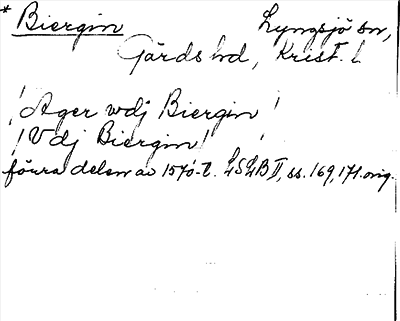 * Biergin Lyngsjö sn,
Gärds hd, Krist. l.
! Ager wdj Biergin !
! Vdj Biergin !
förra delen av 1570-t. LSLB II, ss. 169, 171. orig.